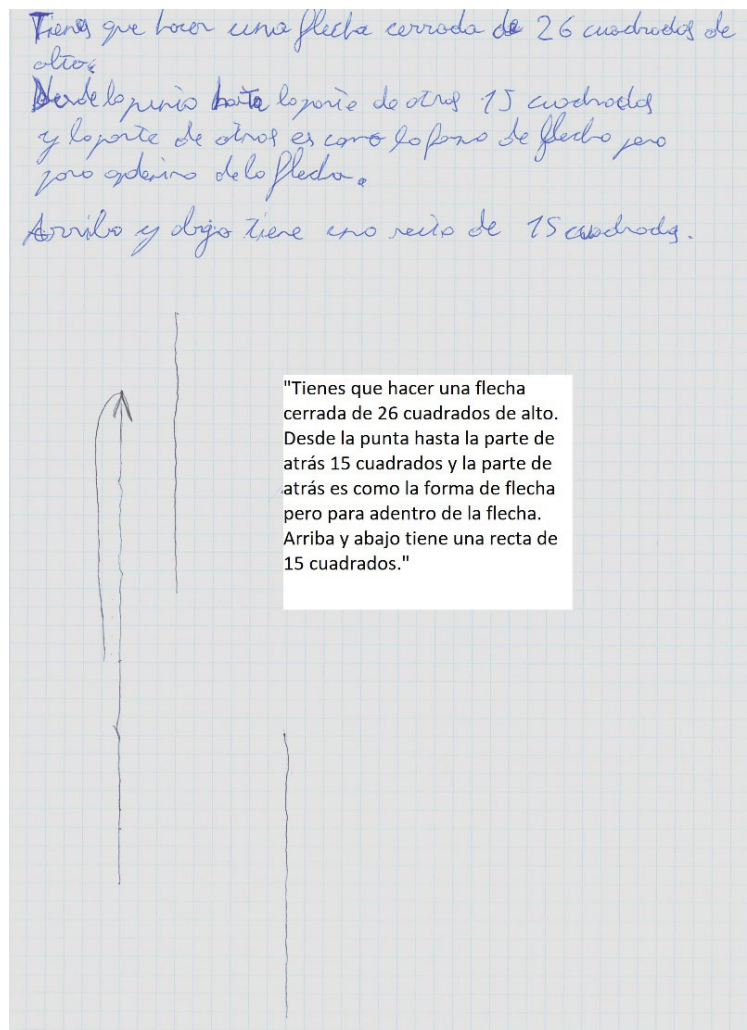 Tienes que hacer una flecha cerrada de 26 cuadrados de
alto.
Desde la punta hasta la parte de atras 15 cuadrados
y la parte de atras es como la forma de flecha pero
para adentro de la flecha.
Arriba y abajo tiene una recta de 15 cuadrados.
"Tienes que hacer una flecha
cerrada de 26 cuadrados de alto.
Desde la punta hasta la parte de
atrás 15 cuadrados y la parte de
atrás es como la forma de flecha
pero para adentro de la flecha.
Arriba y abajo tiene una recta de
15 cuadrados."